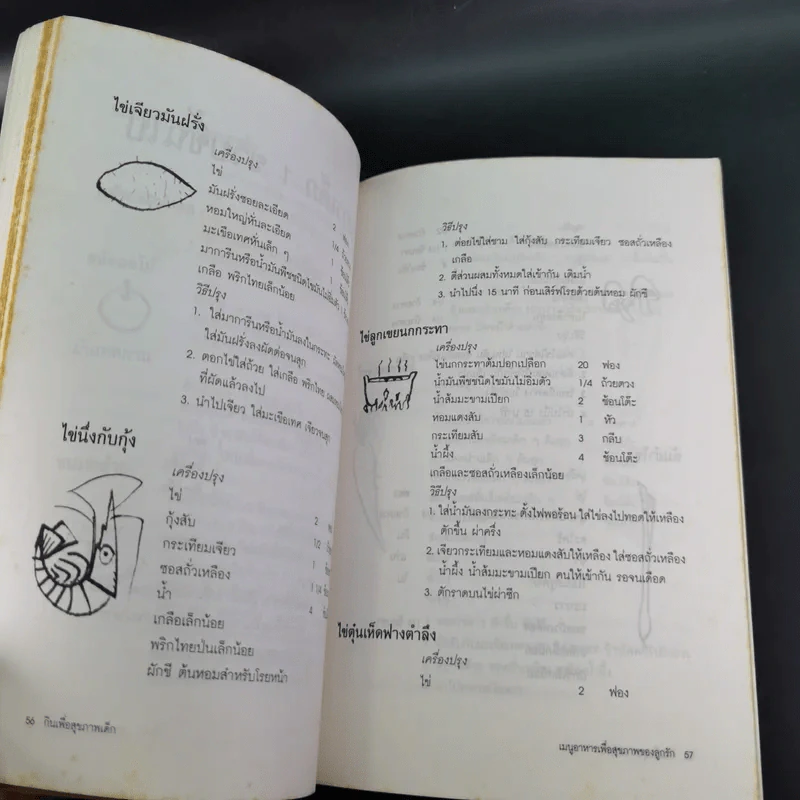 ไข่เจียวมันฝรั่ง
เครื่องปรุง
ไข่ 2
มันฝรั่งซอยละเอียด
หอมใหญ่หั่นละเอียด
มะเขือเทศหั่นเล็ก ๆ 1/4
มาการีนหรือน้ำมันพืชชนิดไขมันไม่อิ่มตัว 1
เกลือ พริกไทยเล็กน้อย
วิธีปรุง
1. ใส่มาการีนหรือน้ำมันลงในกระทะ
ใส่มันฝรั่งลงผัดต่อจนสุก
2. ตอกไข่ใส่ถ้วย ใส่เกลือ พริกไทย
ที่ผัดแล้วลงไป
3. นำไปเจียว ใส่มะเขือเทศ เจียวจนสุก
ไข่นึ่งกับกุ้ง
เครื่องปรุง
ไข่ 2
กุ้งสับ 1/2
กระเทียมเจียว 1
ซอสถั่วเหลือง 1 1/4
น้ำ 4
เกลือเล็กน้อย
พริกไทยป่นเล็กน้อย
ผักชี ต้นหอมสำหรับโรยหน้า
56 กินเพื่อสุขภาพเด็ก
วิธีปรุง
1. ต่อยไข่ใส่ชาม ใส่กุ้งสับ กระเทียมเจียว ซอสถั่วเหลือง
เกลือ
2. ตีส่วนผสมทั้งหมดใส่เข้ากัน เติมน้ำ
3. นำไปนึ่ง 15 นาที ก่อนเสิร์ฟโรยด้วยต้นหอม ผักชี
ไข่ลูกเขยนกกระทา
เครื่องปรุง
ไข่นกกระทาต้มปอกเปลือก 20 ฟอง
น้ำมันพืชชนิดไขมันไม่อิ่มตัว 1/4 ถ้วยตวง
น้ำส้มมะขามเปียก 2 ช้อนโต๊ะ
หอมแดงสับ 1 หัว
กระเทียมสับ 3 กลีบ
น้ำผึ้ง 4 ช้อนโต๊ะ
เกลือและซอสถั่วเหลืองเล็กน้อย
วิธีปรุง
1. ใส่น้ำมันลงกระทะ ตั้งไฟพอร้อน ใส่ไข่ลงไปทอดให้เหลือง
ตักขึ้น ผ่าครึ่ง
2. เจียวกระเทียมและหอมแดงสับให้เหลือง ใส่ซอสถั่วเหลือง
น้ำผึ้ง น้ำส้มมะขามเปียก คนให้เข้ากัน รอจนเดือด
3. ตักราดบนไข่ผ่าซีก
ไข่ตุ๋นเห็ดฟางตำลึง
เครื่องปรุง
ไข่ 2 ฟอง
เมนูอาหารเพื่อสุขภาพของลูกรัก 57